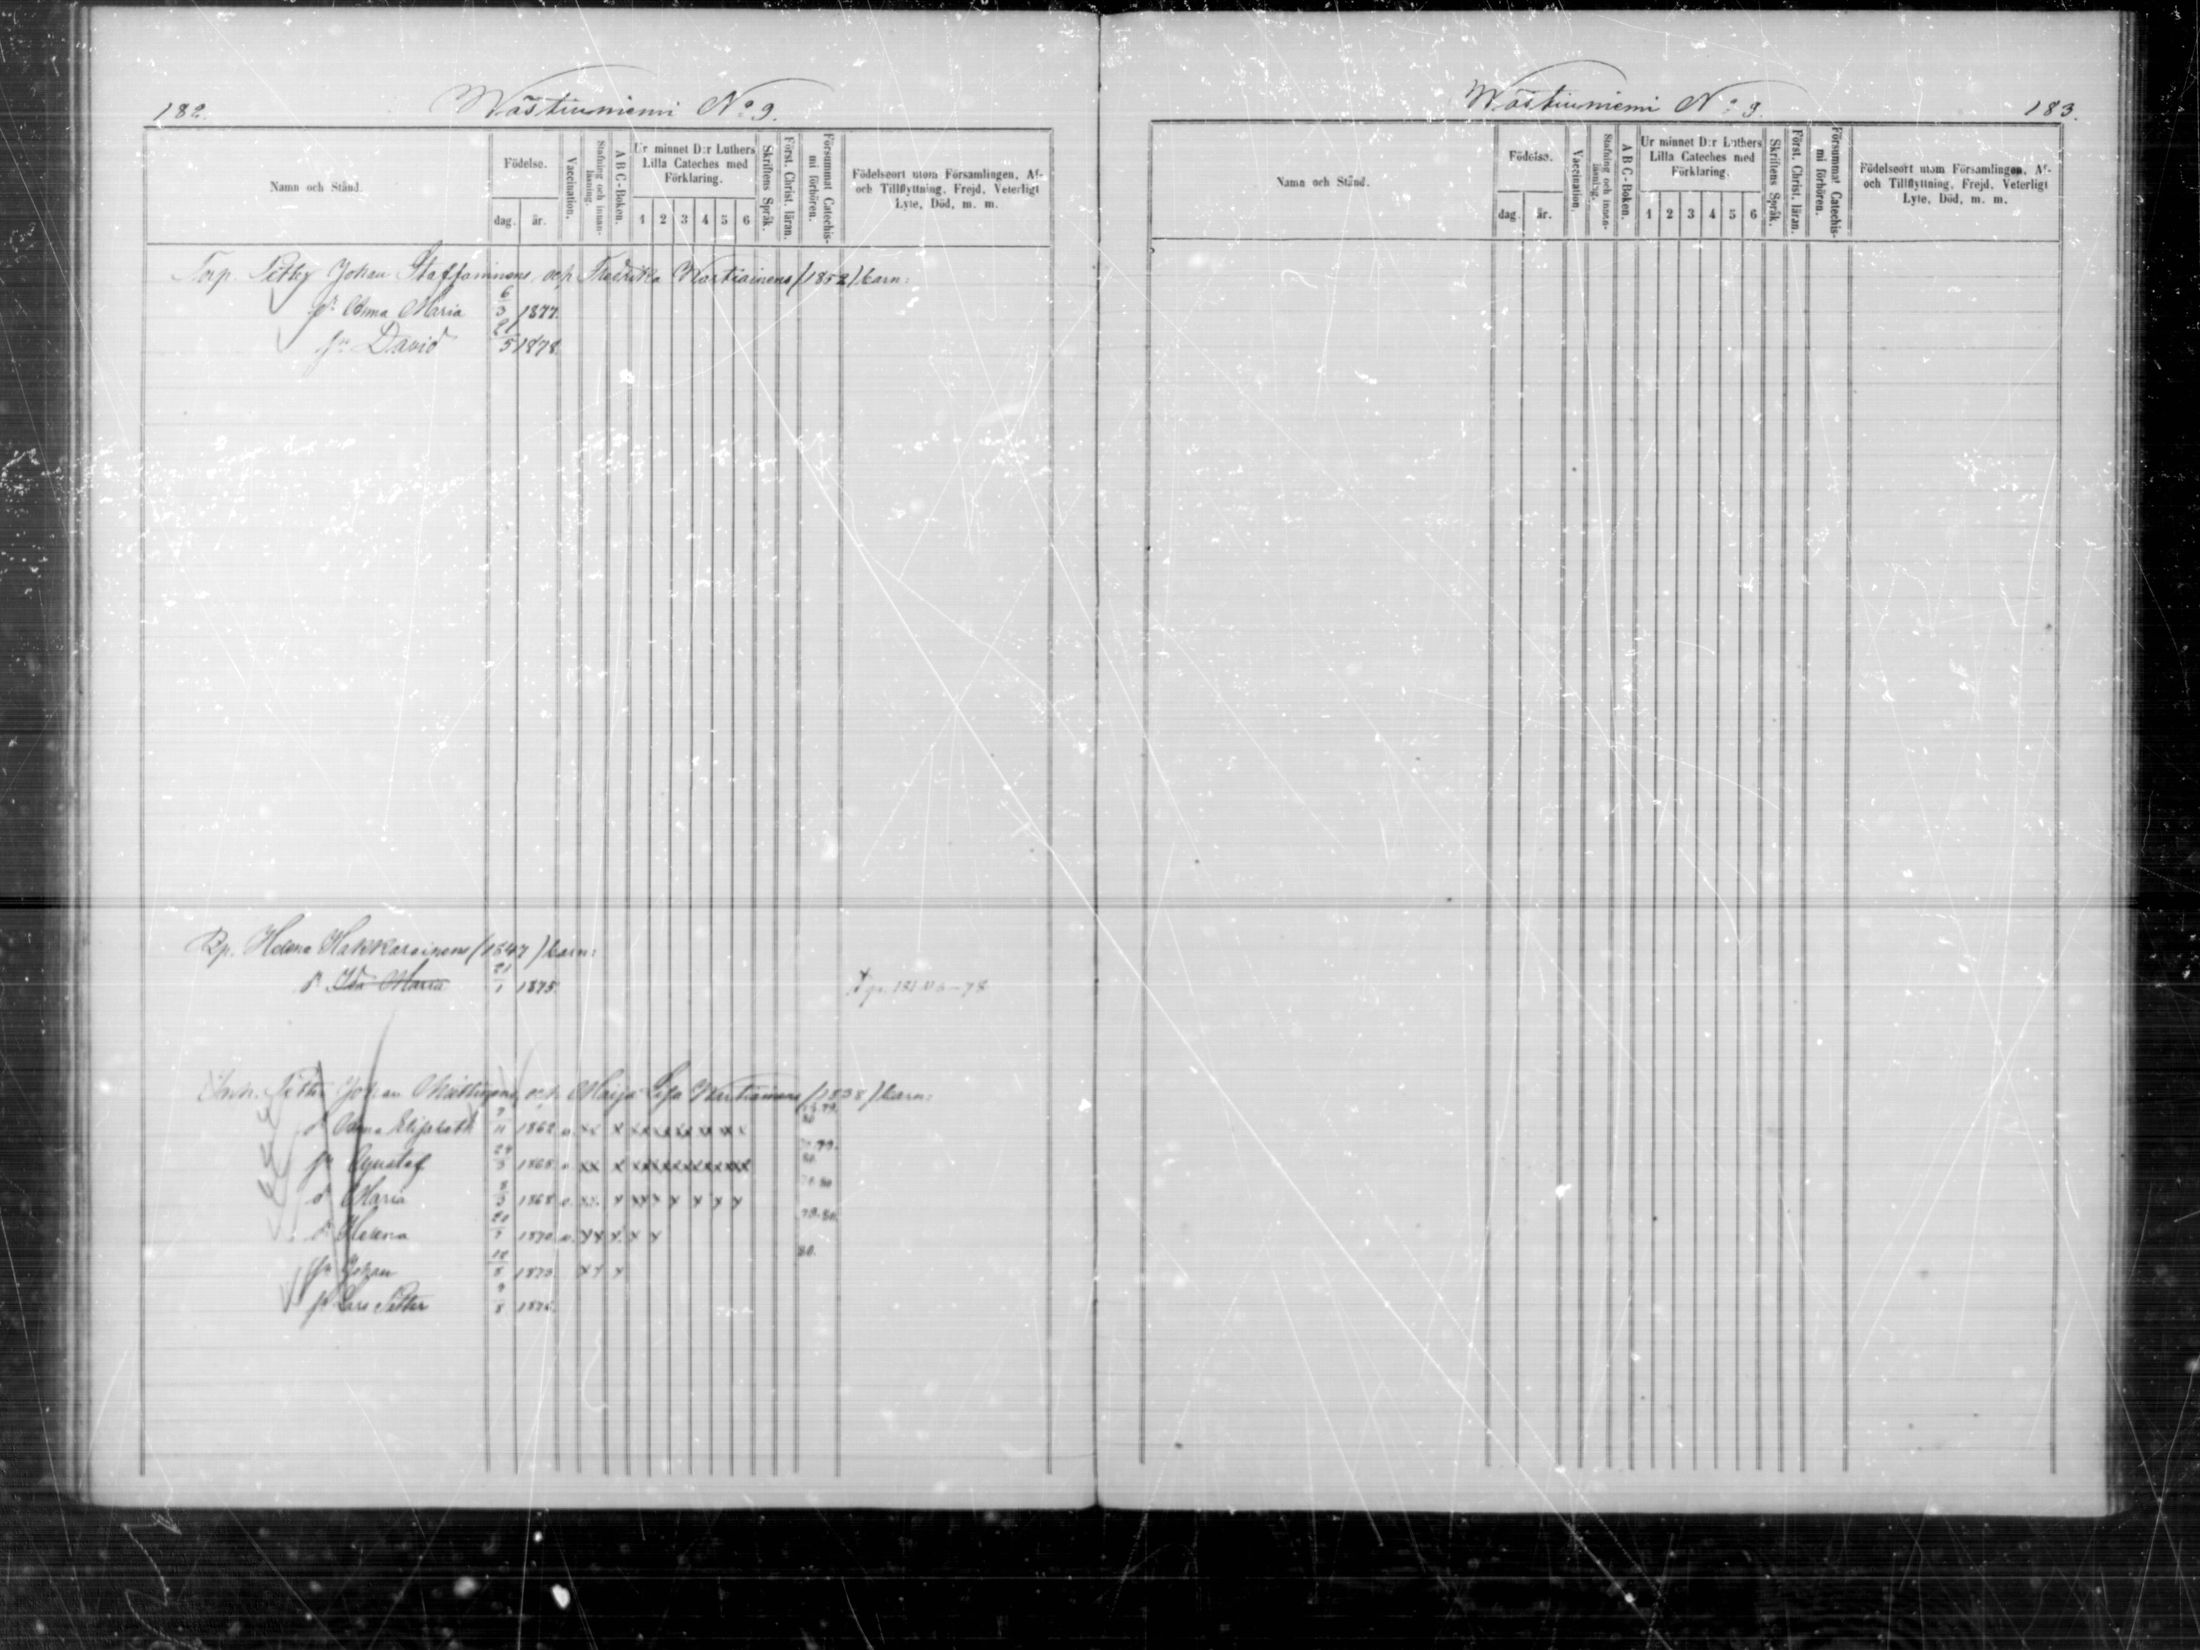 182.
Wästinniemi No 9.
Namn och Stånd.
Födelse.
dag.
år.
Vaccination.
Stafning och innan-
läsning.
A B C-Boken.
Ur minnet D:r Luthers
Lilla Cateches med
Förklaring.
1 2 3 4 5 6
Skriftens Språk.
Först. Christ. läran.
Försummat Catechis-
mi förhören.
Födelseort utom Församlingen, Af-
och Tillflyttning, Frejd, Veterligt
Lyte, Död, m. m.
Torp. Petter Johan Staffaninens och Fredrika Wartiainens (1852) barn:
dr Anna Maria 6/3 1877.
sn David 21/5 1878.
Helena Hakkarainens (1847) barn:
dr Ida Maria 21/1 1875.
Petter Johan och Maija Lisa Wartiainens (1838) barn:
dr Anna Elisabeth 11 1862 x x x x x x x x x
sn Gustaf 24/5 x x x x x x x x x
dr Maria 8/3 1868 x x x x x x x x x
dr Helena 20 1870 x x x x x 79.80.
sn Johan 12/8 1873 x x x 80.
sn Lars Petter 9/8 1876.
Wästinniemi No 9.
183.
Namn och Stånd.
Födelse.
dag.
år.
Vaccination.
Stafning och innan-
läsning.
A B C-Boken.
Ur minnet D:r Luthers
Lilla Cateches med
Förklaring.
1 2 3 4 5 6
Skriftens Språk.
Först. Christ. läran.
Försummat Catechis-
mi förhören.
Födelseort utom Församlingen, Af-
och Tillflyttning, Frejd, Veterligt
Lyte, Död, m. m.